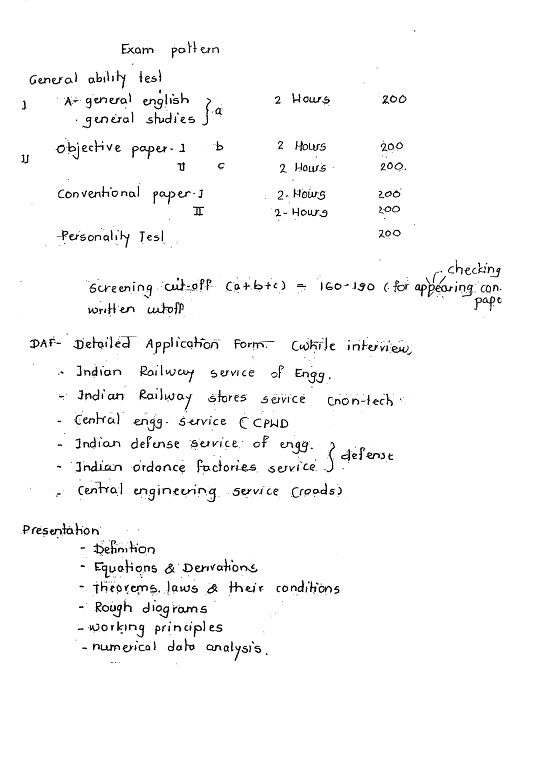 Exam pattern
General ability test
I A- general english } a 2 Hours 200
- general studies
II Objective paper-I b 2 Hours 200
II c 2 Hours 200.
Conventional paper-I 2-Hours 200
II 2-Hours 200
-Personality Test 200
checking
Screening cut-off (a+b+c) = 160-190 (for appearing con.
pape
written cutoff
DAF- Detailed Application Form- (while interview,
- Indian Railway service of Engg.
- Indian Railway stores service (non-tech
- Central engg. service (CPWD
- Indian defense service of engg. } defense
- Indian ordance factories service
- Central engineering service (roads)
Presentation
- Definition
- Equations & Derivations
- Theorems, laws & their conditions
- Rough diagrams
- working principles
- numerical data analysis.